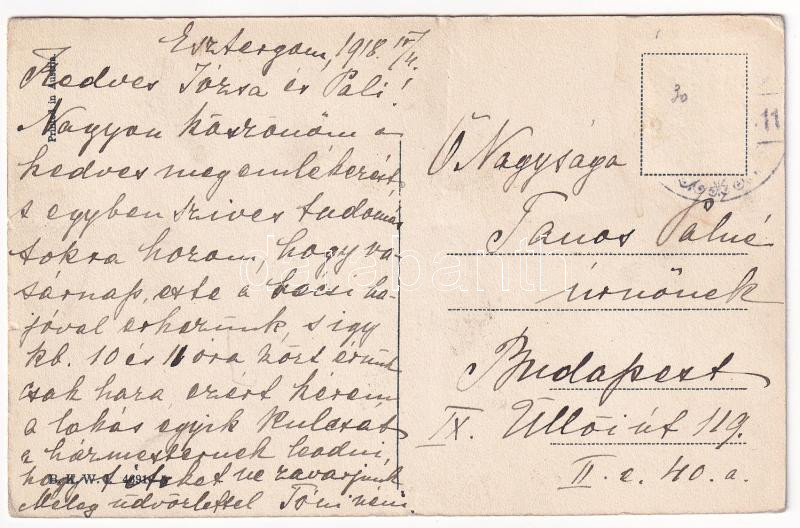 Esztergom, 1918 IV/4.
Kedves Józsa és Pali!
Nagyon köszönöm a
kedves megemlékezést,
s egyben szives tudomás
tokra hozom, hogy va-
sárnap este a bécsi ha-
jóval érkezünk, s igy
kb. 10 és 11 óra közt érünk
csak haza ezért kérem
a lakás egyik kulcsát
a házmesternek leadni,
hogy titeket ne zavarjunk
Meleg üdvözlettel Tóni
Printed in Austria.
B. K. W. I.
30
11
Ő Nagysága
Tanos Pálné
úrnőnek
Budapest
IX. Üllői út 119.
II. e. 40. a.
darabanth